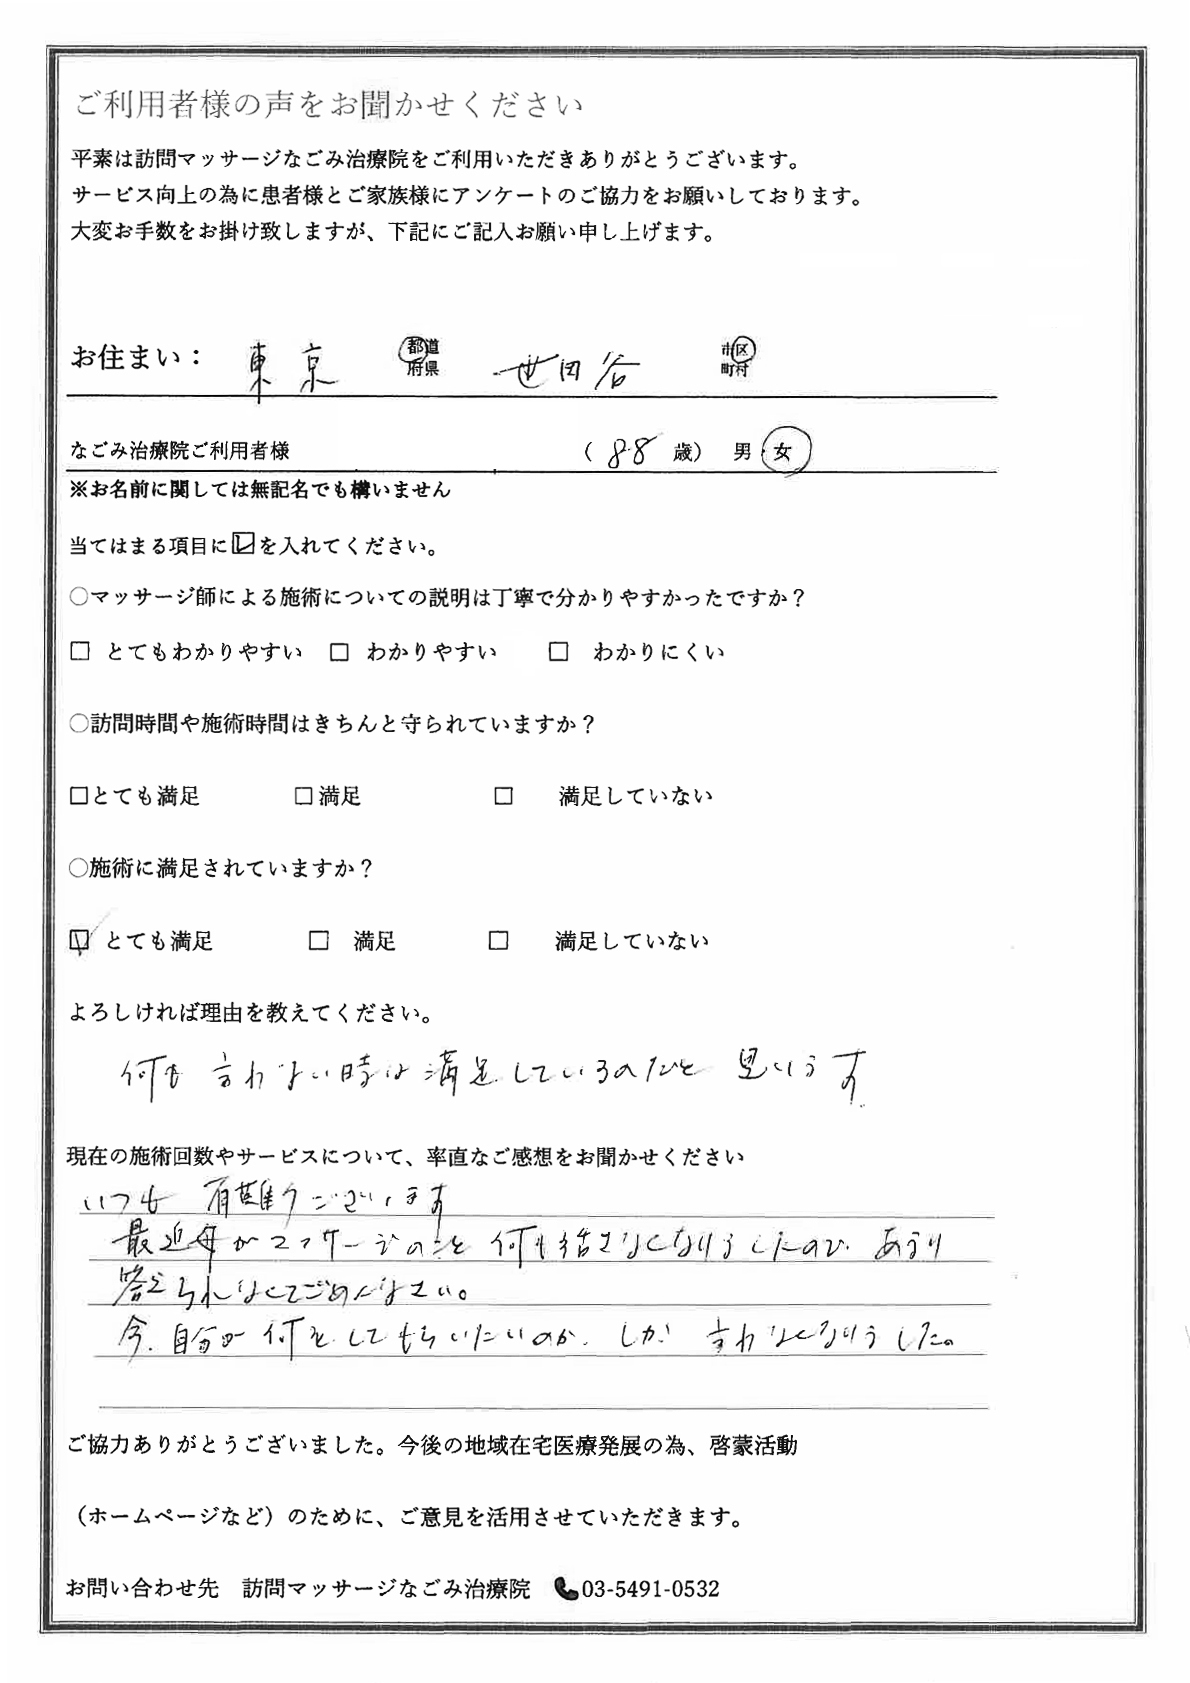 ご利用者様の声をお聞かせください
平素は訪問マッサージなごみ治療院をご利用いただきありがとうございます。
サービス向上の為に患者様とご家族様にアンケートのご協力をお願いしております。
大変お手数をお掛け致しますが、下記にご記入お願い申し上げます。
お住まい： 東京 都道府県 世田谷 市区町村
なごみ治療院ご利用者様 （ 88 歳） 男・女
※お名前に関しては無記名でも構いません
当てはまる項目に☑を入れてください。
○マッサージ師による施術についての説明は丁寧で分かりやすかったですか？
□ とてもわかりやすい □ わかりやすい □ わかりにくい
○訪問時間や施術時間はきちんと守られていますか？
□とても満足 □満足 □ 満足していない
○施術に満足されていますか？
☑ とても満足 □ 満足 □ 満足していない
よろしければ理由を教えてください。
何も言わない時は満足しているのだと思います
現在の施術回数やサービスについて、率直なご感想をお聞かせください
いつも有難うございます
最近母がマッサージのこと何も話さなくなりましたので、あまり
答えられなくてごめんなさい。
今、自分が何をしてもらいたいのか、しか言わなくなりました。
ご協力ありがとうございました。今後の地域在宅医療発展の為、啓蒙活動
（ホームページなど）のために、ご意見を活用させていただきます。
お問い合わせ先 訪問マッサージなごみ治療院 📞03-5491-0532